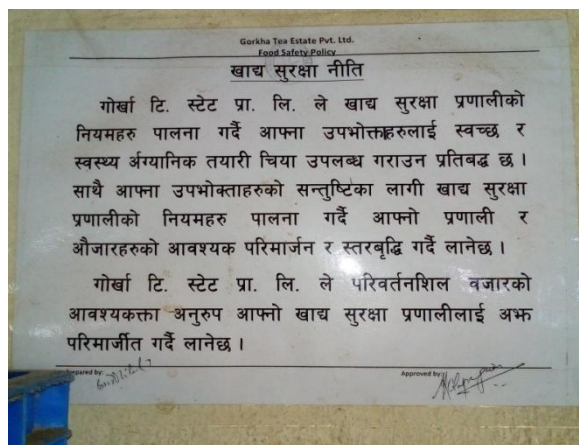 Gorkha Tea Estate Pvt. Ltd.
Food Safety Policy
खाद्य सुरक्षा नीति
गोर्खा टि. स्टेट प्रा. लि. ले खाद्य सुरक्षा प्रणालीको
नियमहरु पालना गर्दै आफ्ना उपभोक्ताहरुलाई स्वच्छ र
स्वस्थ्य अर्ग्यानिक तयारी चिया उपलब्ध गराउन प्रतिबद्ध छ ।
साथै आफ्ना उपभोक्ताहरुको सन्तुष्टिका लागी खाद्य सुरक्षा
प्रणालीको नियमहरु पालना गर्दै आफ्नो प्रणाली र
औजारहरुको आवश्यक परिमार्जन र स्तरबृद्धि गर्दै लानेछ ।
गोर्खा टि. स्टेट प्रा. लि. ले परिवर्तनशिल वजारको
आवश्यकक्ता अनुरुप आफ्नो खाद्य सुरक्षा प्रणालीलाई अझ
परिमार्जीत गर्दै लानेछ ।
Prepared by:
Approved by: